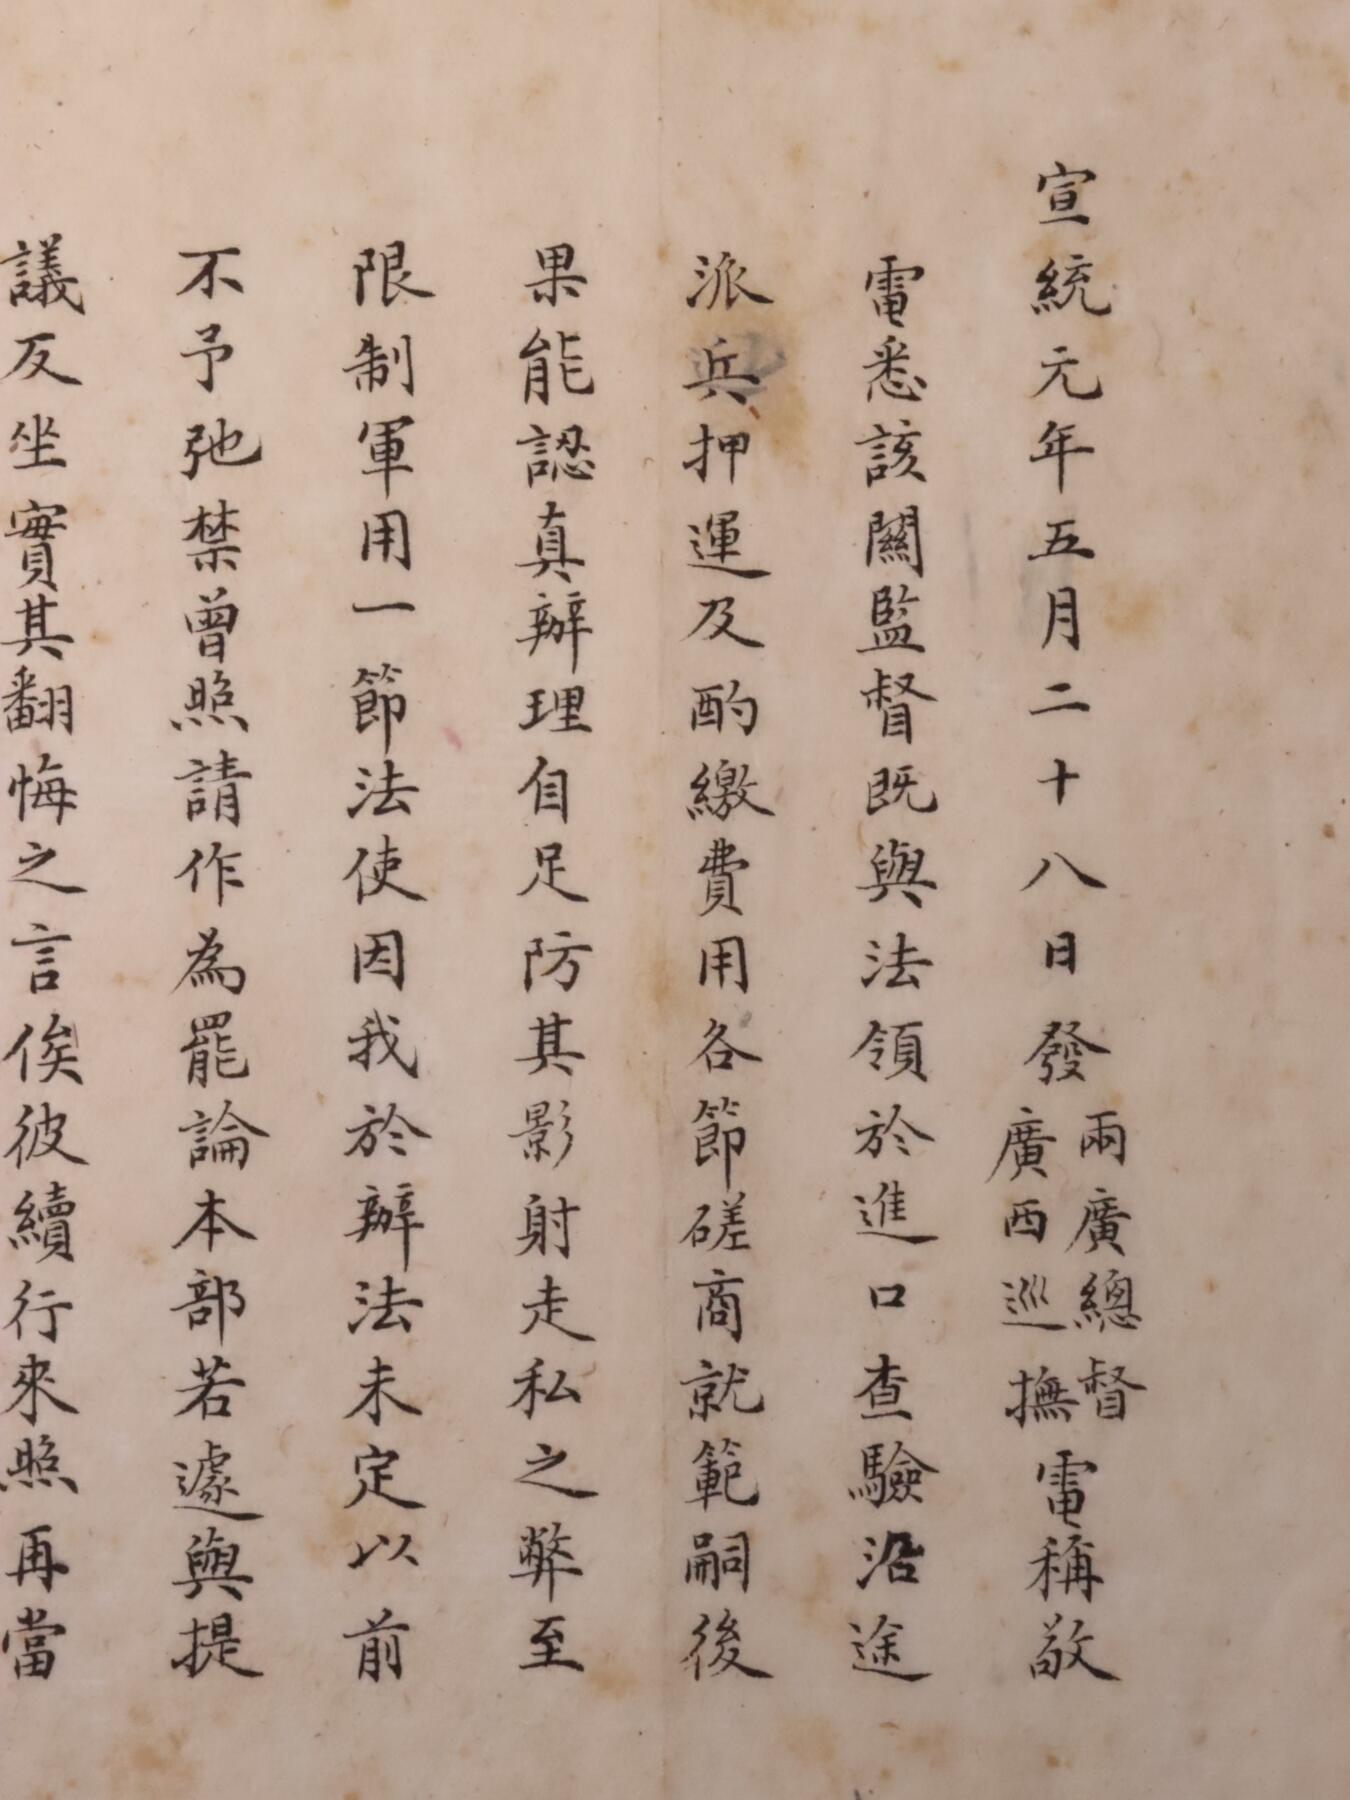 宣統元年五月二十八日發兩廣總督廣西巡撫電稱敬
電悉該關監督既與法領於進口查驗沿途
派兵押運及酌繳費用各節磋商就範嗣後
果能認真辦理自足防其影射走私之弊至
限制軍用一節法使因我於辦法未定以前
不予弛禁曾照請作為罷論本部若遽與提
議反坐實其翻悔之言俟彼續行來照再當